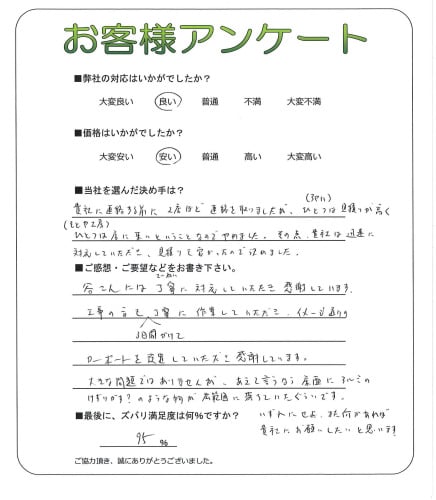 お客様アンケート
■弊社の対応はいかがでしたか?
大変良い 良い 普通 不満 大変不満
■価格はいかがでしたか?
大変安い 安い 普通 高い 大変高い
■当社を選んだ決め手は?
貴社に連絡する前に2店ほど連絡を取りましたが、ひとつは見積りが高く
ひとつは店に来いということなのでやめました。その点、貴社は迅速に
対応していただき、見積りも安かったので決めました。
■ご感想・ご要望などをお書き下さい。
には丁寧に対応していただき感謝しています。
工事の方も丁寧に作業していただき、イメージ通りの
3日間かけて
カーポートを設置していただき感謝しています。
大きな問題ではありませんが、あえて言うなら屋面にアルミの
けずりカス?のような物が広範囲に落ちていたぐらいです。
■最後に、ズバリ満足度は何%ですか?
いずれにせよ、また何かあれば
貴社にお願いしたいと思います!
95 %
ご協力頂き、誠にありがとうございました。